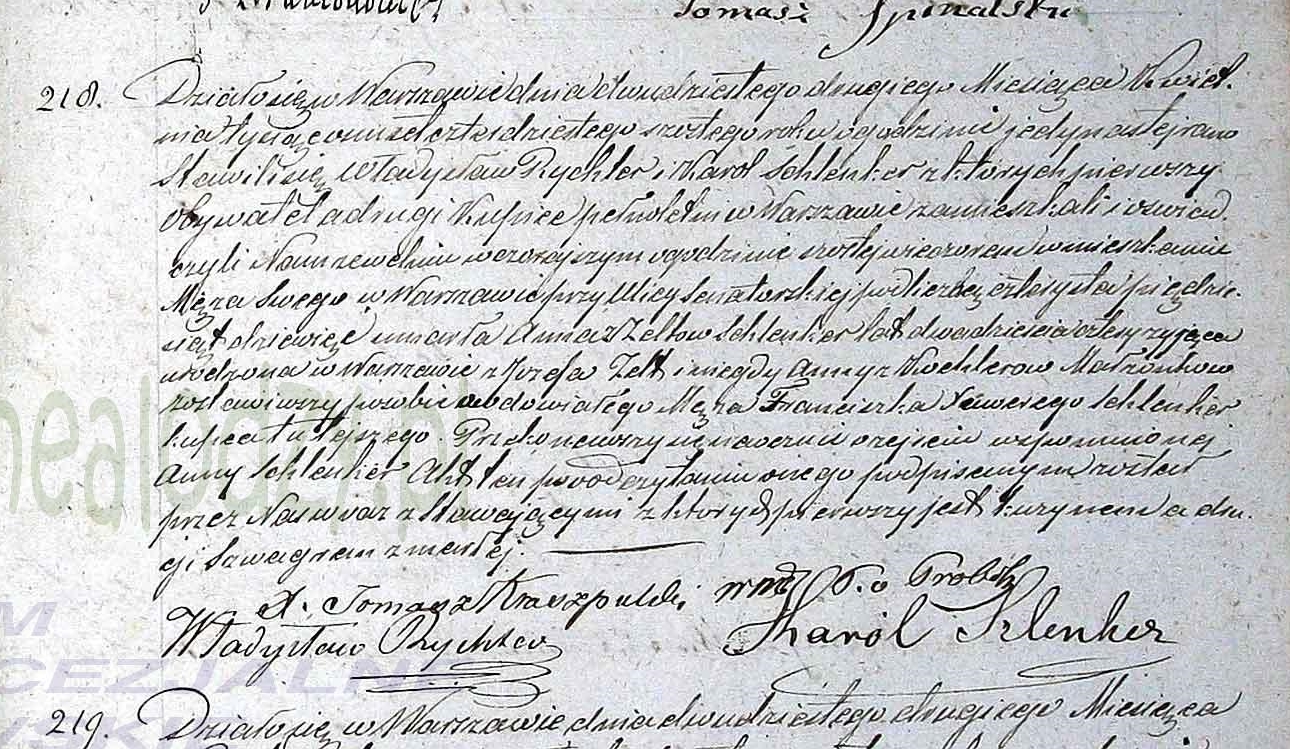 Tomasz
218. Działo się w Warszawie dnia dwudziestego drugiego Miesiąca Kwiet.
nia tysiąc ośmset czterdziestego szóstego roku o godzinie jedynastej rano
Stawili się Władysław Rychter i Karol Schlenker z których pierwszy
Obywatel a drugi Kupiec pełnoletni w Warszawie zamieszkali i oświad.
czyli Nam że w dniu wczorajszym o godzinie szóstej wieczorem w mieszkaniu
Męża swego w Warszawie przy Ulicy Senatorskiej pod liczbą czterysta pięćdzie.
siąt dziewięć umarła Anna z Zeltów Schlenker lat dwadzieścia cztery żyjąca
urodzona w Warszawie z Józefa Zelt i niegdy Anny z Kochlerow Małżonków
zostawiwszy po sobie owdowiałego Męża Franciszka Xawerego Schlenker
kupca tutejszego. Przekonawszy się naocznie o zejściu wspomnionej
Anny Schlenker Akt ten po odczytaniu onego podpisanym został
przez Nas wraz z Stawającymi z których pierwszy jest kuzynem a dru.
gi Szwagrem zmarłej.
X. Tomasz P.o Prob
Władysław Rychter Karol Szlenker
219. Działo się w Warszawie dnia dwudziestego drugiego Miesiąca
nealodzi.pl
M
CEZJALN
WSKI